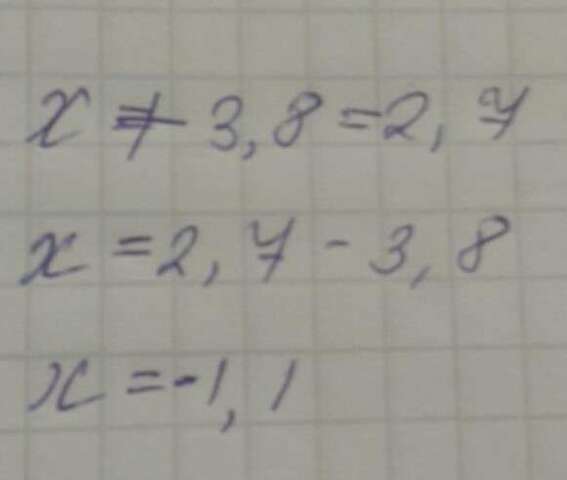 x + 3,8 = 2,7
x = 2,7 - 3,8
x = -1,1